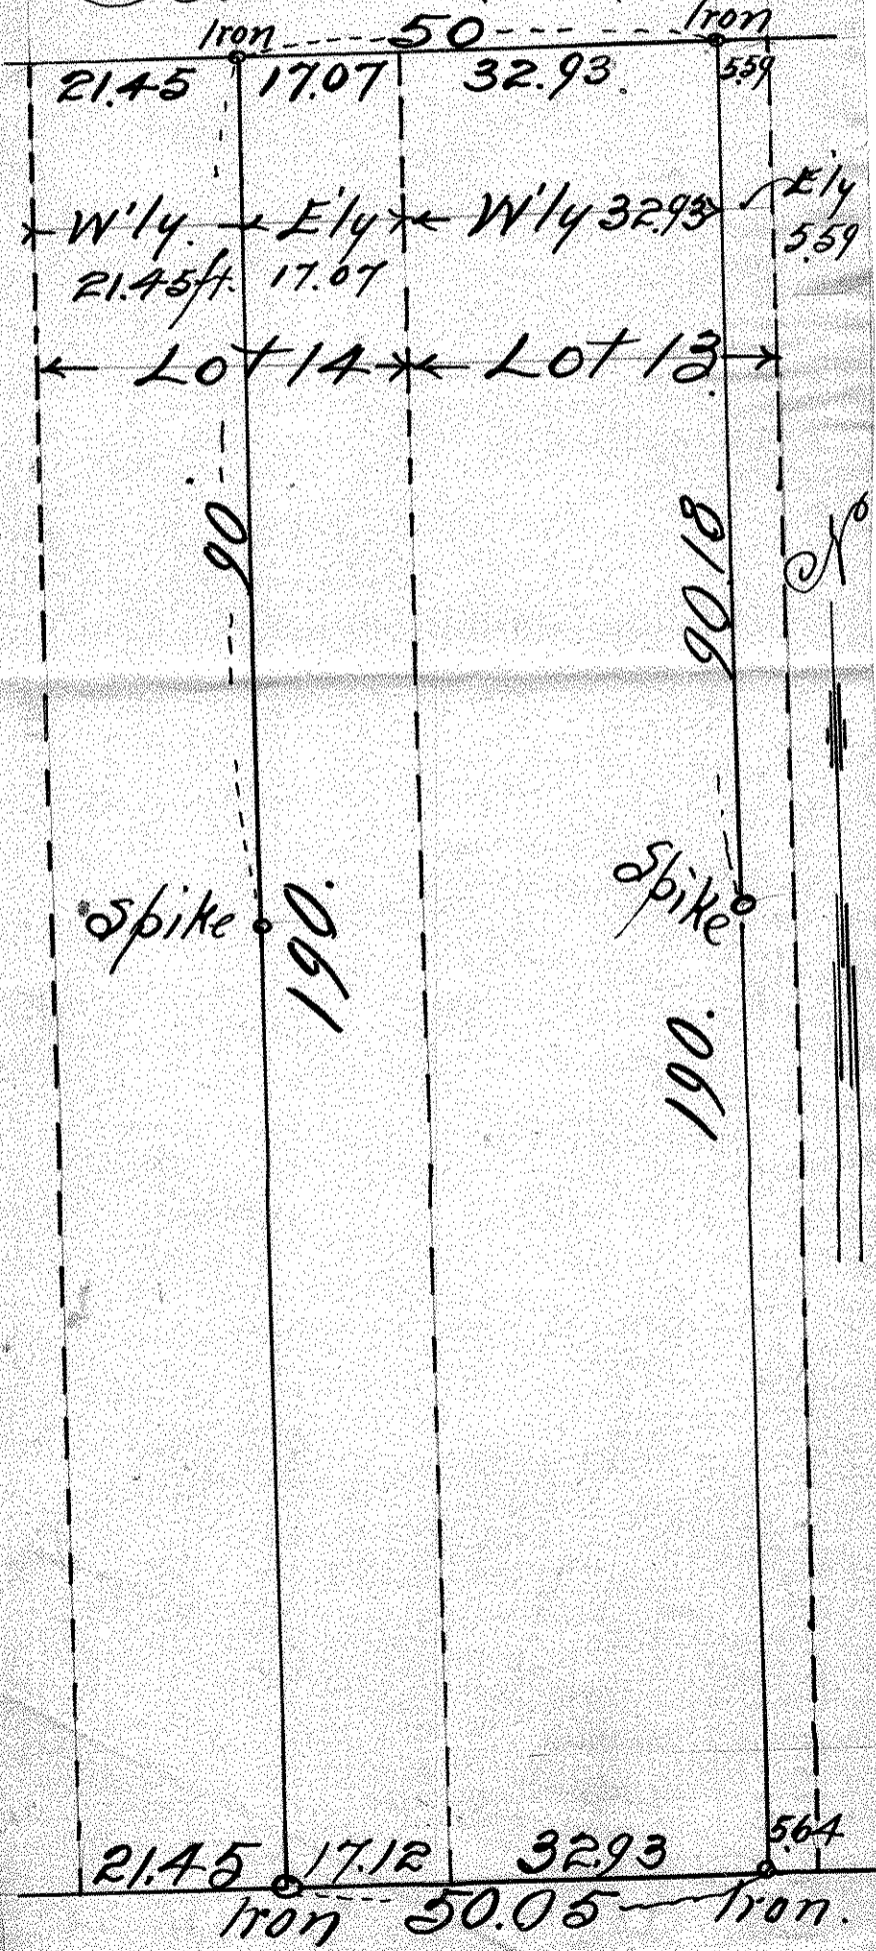 Iron 50 Iron
21.45 17.07 32.93 5.59
W'ly. E'ly W'ly 32.93 E'ly
21.45 ft. 17.07 5.59
Lot 14 Lot 13
90
90.18
N
Spike
Spike
190.
190.
21.45 17.12 32.93 5.64
Iron 50.05 Iron.